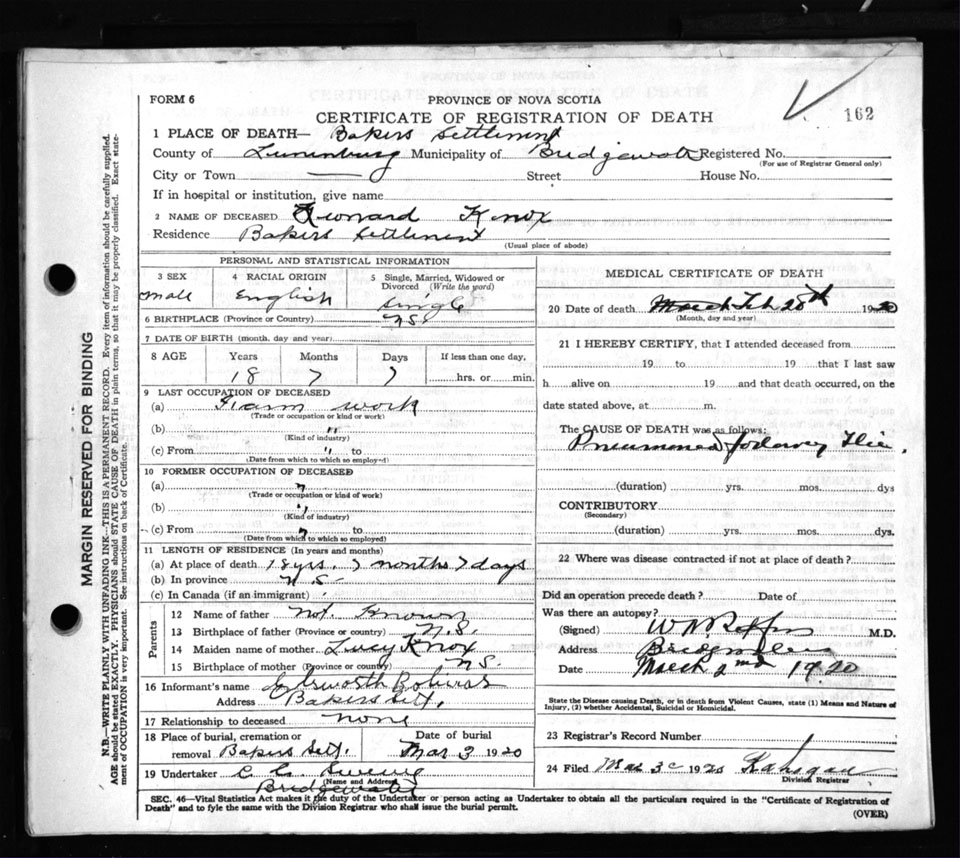 FORM 6
PROVINCE OF NOVA SCOTIA
CERTIFICATE OF REGISTRATION OF DEATH
162
1 PLACE OF DEATH— Bakers Settlement
County of Lunenburg Municipality of Bridgewater Registered No.
(For use of Registrar General only)
City or Town — Street House No.
If in hospital or institution, give name
2 NAME OF DECEASED Knox
Residence Bakers Settlement
(Usual place of abode)
PERSONAL AND STATISTICAL INFORMATION
3 SEX 4 RACIAL ORIGIN 5 Single, Married, Widowed or Divorced (Write the word)
Male English Single
6 BIRTHPLACE (Province or Country) N.S.
7 DATE OF BIRTH (month, day and year)
8 AGE Years Months Days If less than one day,
18 7 7 hrs. or min.
9 LAST OCCUPATION OF DECEASED
(a) Farm work
(Trade or occupation or kind of work)
(b) "
(Kind of industry)
(c) From " to
(Date from which to which so employed)
10 FORMER OCCUPATION OF DECEASED
(a) "
(Trade or occupation or kind of work)
(b) "
(Kind of industry)
(c) From " to
(Date from which to which so employed)
11 LENGTH OF RESIDENCE (In years and months)
(a) At place of death 18 yrs. 7 months 7 days
(b) In province N.S.
(c) In Canada (if an immigrant)
Parents
12 Name of father Not Known
13 Birthplace of father (Province or country) N.S.
14 Maiden name of mother Lucy Knox
15 Birthplace of mother (Province or country) N.S.
16 Informant's name Bolivar
Address Bakers Sett.
17 Relationship to deceased none
18 Place of burial, cremation or removal Bakers Sett. Date of burial Mar 3 1920
19 Undertaker
(Name and Address)
Bridgewater
MEDICAL CERTIFICATE OF DEATH
20 Date of death March Feb 28th 1920
(Month, day and year)
21 I HEREBY CERTIFY, that I attended deceased from
19 to 19 that I last saw
h alive on 19 and that death occurred, on the
date stated above, at m.
The CAUSE OF DEATH was as follows:
(duration) yrs. mos. dys
CONTRIBUTORY
(Secondary)
(duration) yrs. mos. dys.
22 Where was disease contracted if not at place of death?
Did an operation precede death? Date of
Was there an autopsy?
(Signed) M.D.
Address
Date March 2nd 1920
State the Disease causing Death, or in death from Violent Causes, state (1) Means and Nature of Injury, (2) whether Accidental, Suicidal or Homicidal.
23 Registrar's Record Number
24 Filed Mar 3 1920
Division Registrar
SEC. 46—Vital Statistics Act makes it the duty of the Undertaker or person acting as Undertaker to obtain all the particulars required in the "Certificate of Registration of
Death" and to fyle the same with the Division Registrar who shall issue the burial permit.
(OVER)
MARGIN RESERVED FOR BINDING
N.B.—WRITE PLAINLY WITH UNFADING INK—THIS IS A PERMANENT RECORD. Every item of information should be carefully supplied.
AGE should be stated EXACTLY. PHYSICIANS should STATE CAUSE OF DEATH in plain terms, so that it may be properly classified. Exact state-
ment of OCCUPATION is very important. See instructions on back of Certificate.